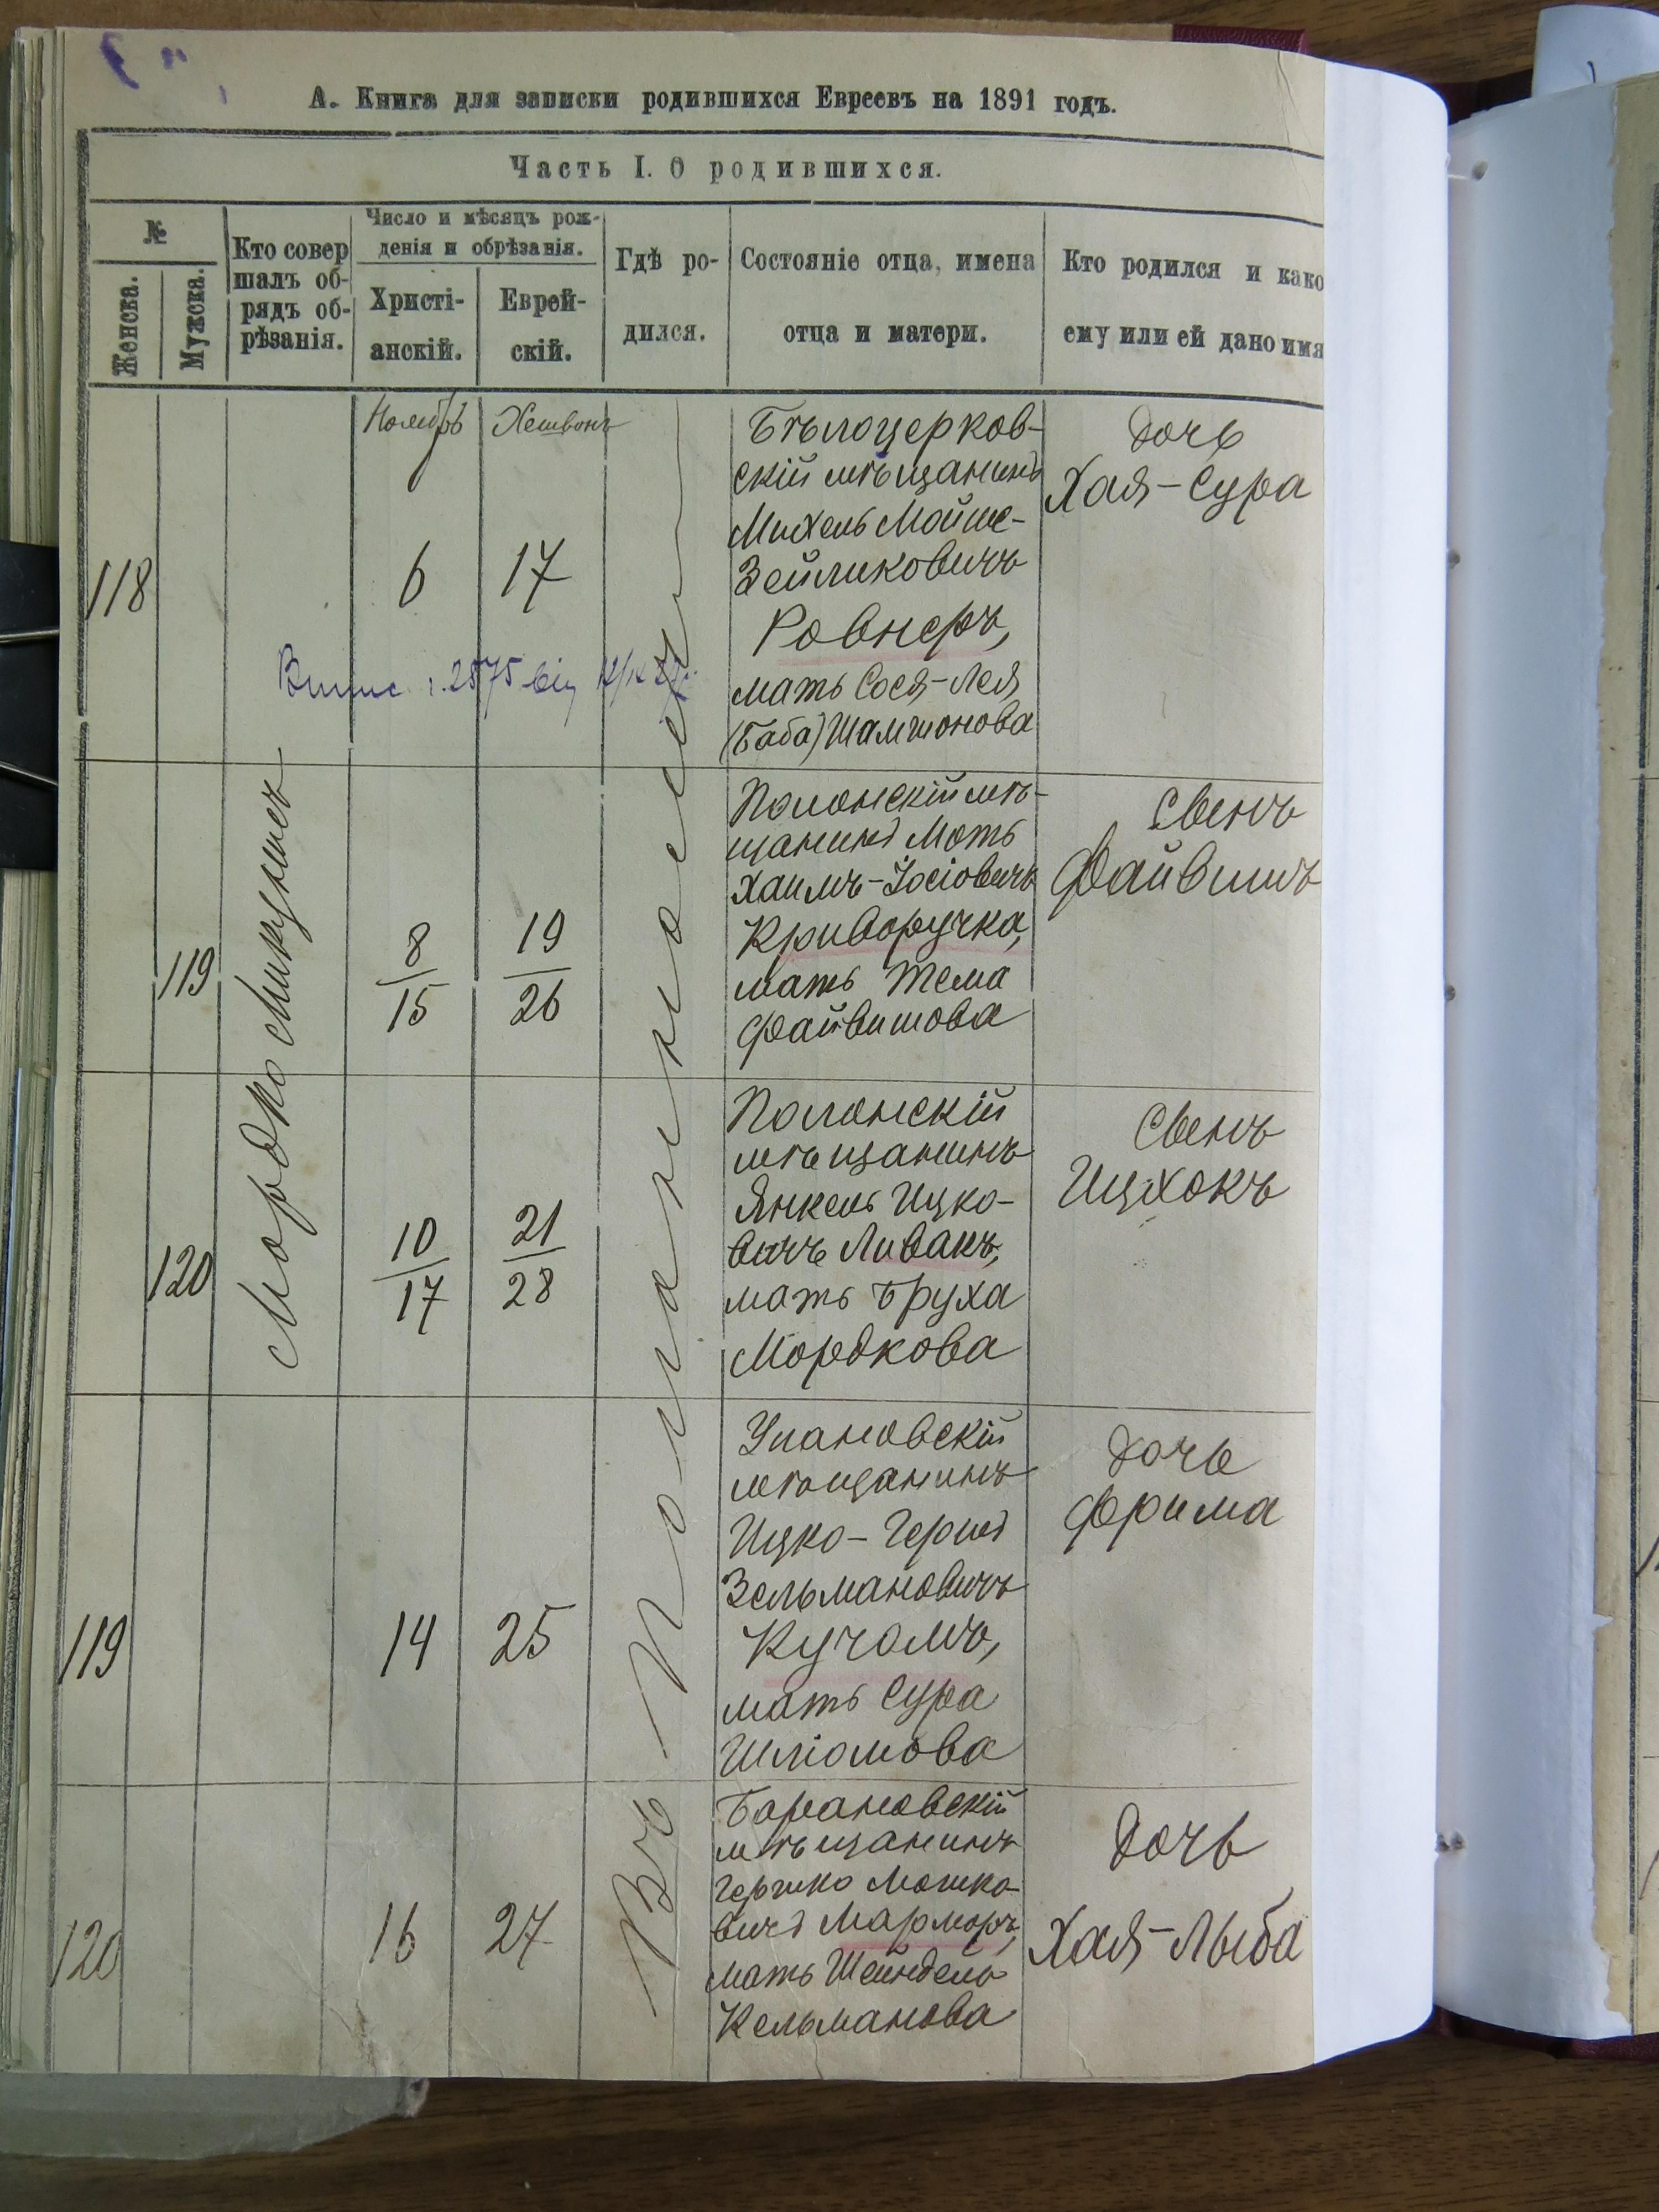 А. Книга для записки родившихся Евреевъ на 1891 годъ.
Часть I. О родившихся.
№
Женска.
Мужска.
Кто совер
шалъ об-
рядъ об-
рѣзанія.
Число и мѣсяцъ рож-
денія и обрѣзанія.
Христі-
анскій.
Еврей-
скій.
Гдѣ ро-
дился.
Состояніе отца, имена
отца и матери.
Кто родился и како
ему или ей дано имя
118
Ноябрь
6
Хешвонъ
17
Бѣлоцерков-
скій мѣщанинъ
Михель Мойше-
Зейликовичъ
Ровнеръ,
мать Сося-Лея
(Баба) Шамшонова
Дочь
Хая-Сура
2575 від
119
Мордко
8
15
19
26
Въ Полонномъ
Полонскій мѣ-
щанинъ Моть
Хаимъ-Іосіовичъ
Криворучка,
мать Тема
Файвишова
Сынъ
Файвишъ
120
10
17
21
28
Полонскій
мѣщанинъ
Янкель Ицко-
вичъ Ливакъ,
мать Бруха
Мордкова
Сынъ
Ицхокъ
119
14
25
Улановскій
мѣщанинъ
Ицко-Гершъ
Зельмановичъ
Кучомъ,
мать Сура
Шліомова
Дочь
Фрима
120
16
27
Барановскій
мѣщанинъ
Гершко Мошко-
вичъ Марморъ,
мать Шейндель
Кельманова
Дочь
Хая-Лыба